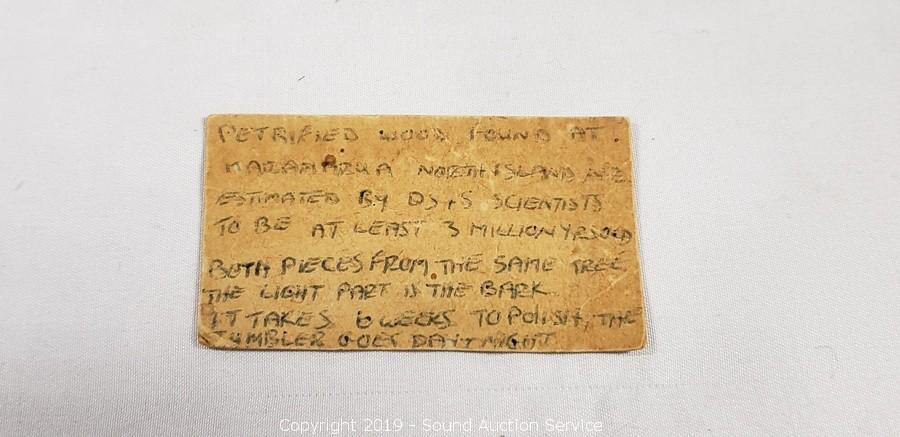 PETRIFIED WOOD FOUND AT
MARAMARUA NORTH ISLAND N.Z
ESTIMATED BY DS+S SCIENTISTS
TO BE AT LEAST 3 MILLION YRS OLD
BOTH PIECES FROM THE SAME TREE
THE LIGHT PART IS THE BARK
IT TAKES 6 WEEKS TO POLISH, THE
TUMBLER GOES DAY+NIGHT
Copyright 2019 - Sound Auction Service